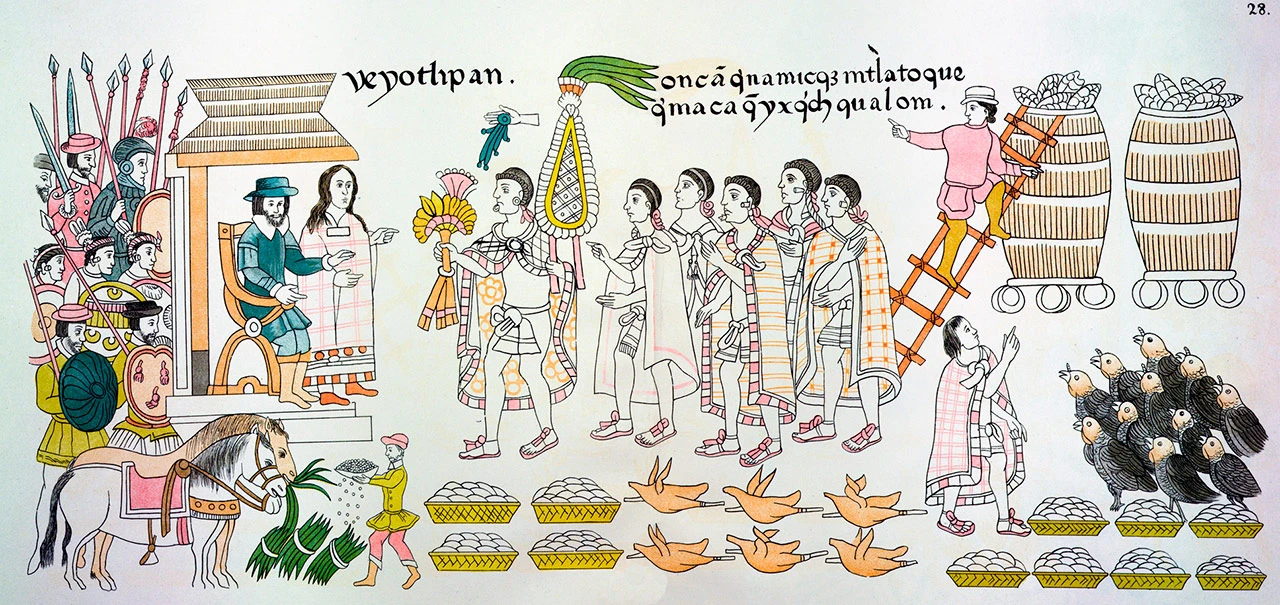 28.
veyotlipan .
oncã q̃namicqȝ intl̀atoque
q̇maca q̃yxq̇ch qualoni .